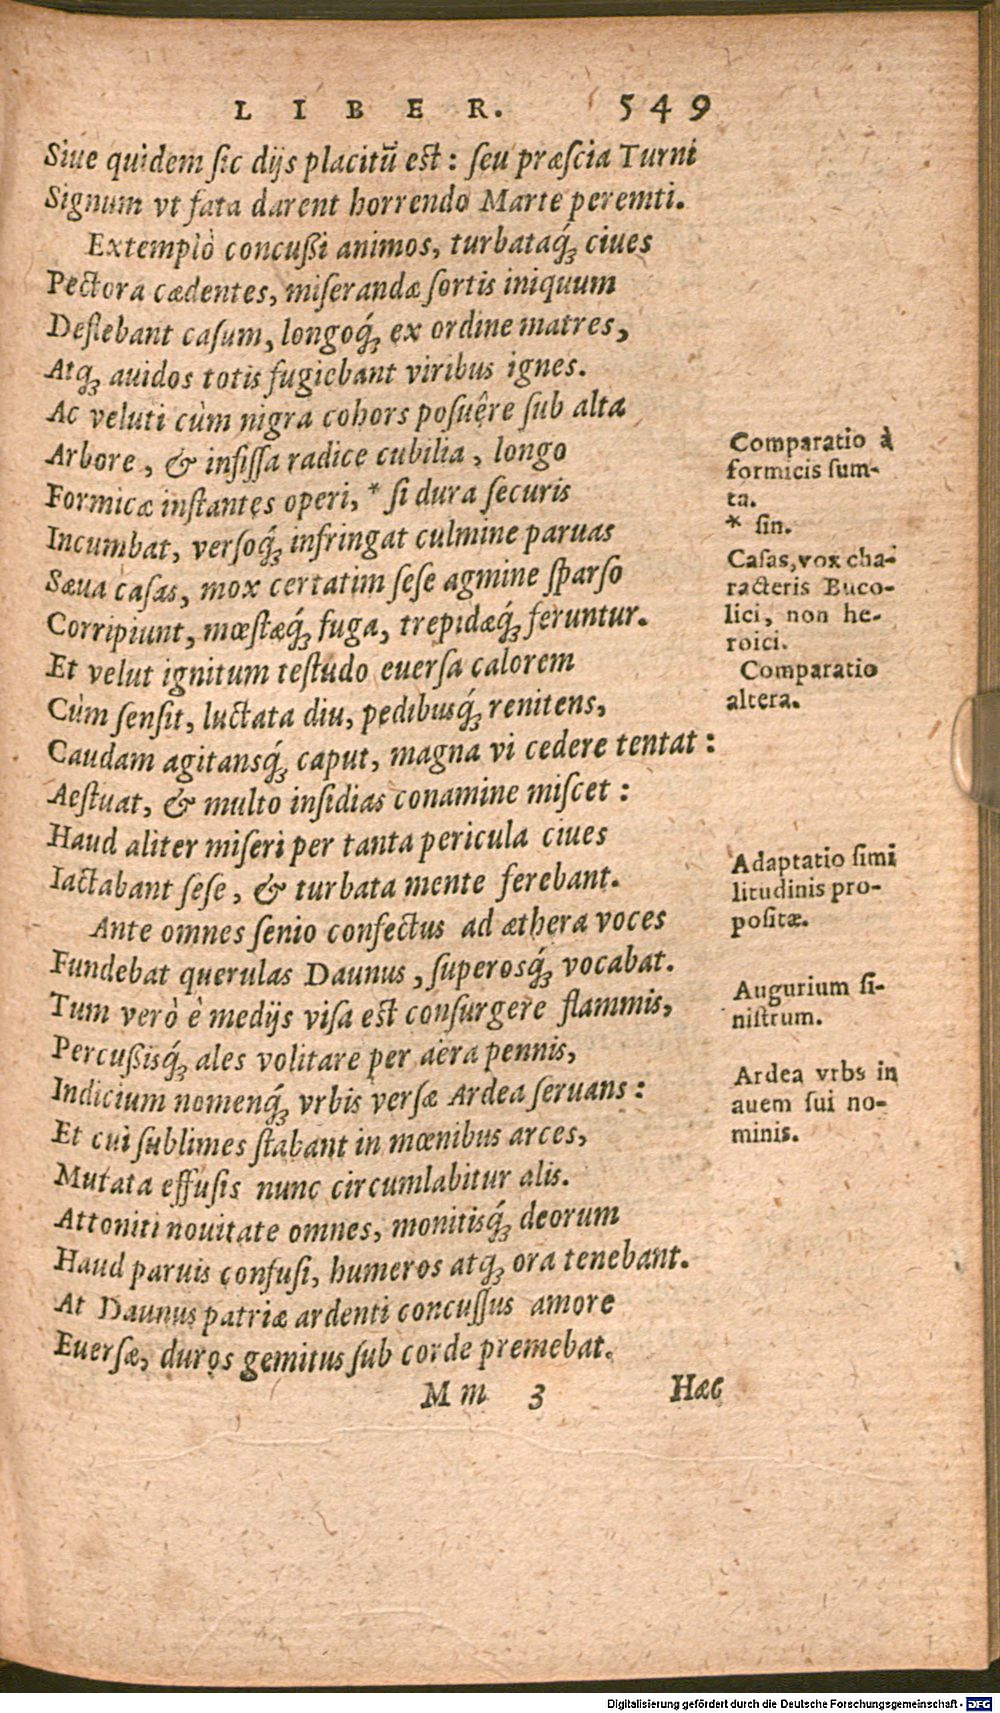 LIBER. 549
Siue quidem sic dijs placitū est : seu præscia Turni
Signum vt fata darent horrendo Marte peremti.
Extemplò concußi animos, turbataq́; ciues
Pectora cædentes, miserandæ sortis iniquum
Deflebant casum, longoq́; ex ordine matres,
Atq; auidos totis fugiebant viribus ignes.
Ac veluti cùm nigra cohors posuêre sub alta
Arbore, & insissa radice cubilia, longo
Formicæ instantes operi, * si dura securis
Incumbat, versoq́; infringat culmine paruas
Sæua casas, mox certatim sese agmine sparso
Corripiunt, mœstæq́; fuga, trepidæq́; feruntur.
Et velut ignitum testudo euersa calorem
Cùm sensit, luctata diu, pedibusq́; renitens,
Caudam agitansq́; caput, magna vi cedere tentat :
Aestuat, & multo insidias conamine miscet :
Haud aliter miseri per tanta pericula ciues
Iactabant sese, & turbata mente ferebant.
Ante omnes senio confectus ad æthera voces
Fundebat querulas Daunus, superosq́; vocabat.
Tum verò è medijs visa est consurgere flammis,
Percußisq́; ales volitare per aëra pennis,
Indicium nomenq́; vrbis versæ Ardea seruans :
Et cui sublimes stabant in mœnibus arces,
Mutata effusis nunc circumlabitur alis.
Attoniti nouitate omnes, monitisq́; deorum
Haud paruis confusi, humeros atq; ora tenebant.
At Daunus patriæ ardenti concussus amore
Euersæ, duros gemitus sub corde premebat.
Mm 3 Hæc
Comparatio à
formicis sum-
ta.
* sin.
Casas, vox cha-
racteris Buco-
lici, non he-
roici.
Comparatio
altera.
Adaptatio simi
litudinis pro-
positæ.
Augurium si-
nistrum.
Ardea vrbs in
auem sui no-
minis.
Digitalisierung gefördert durch die Deutsche Forschungsgemeinschaft - DFG